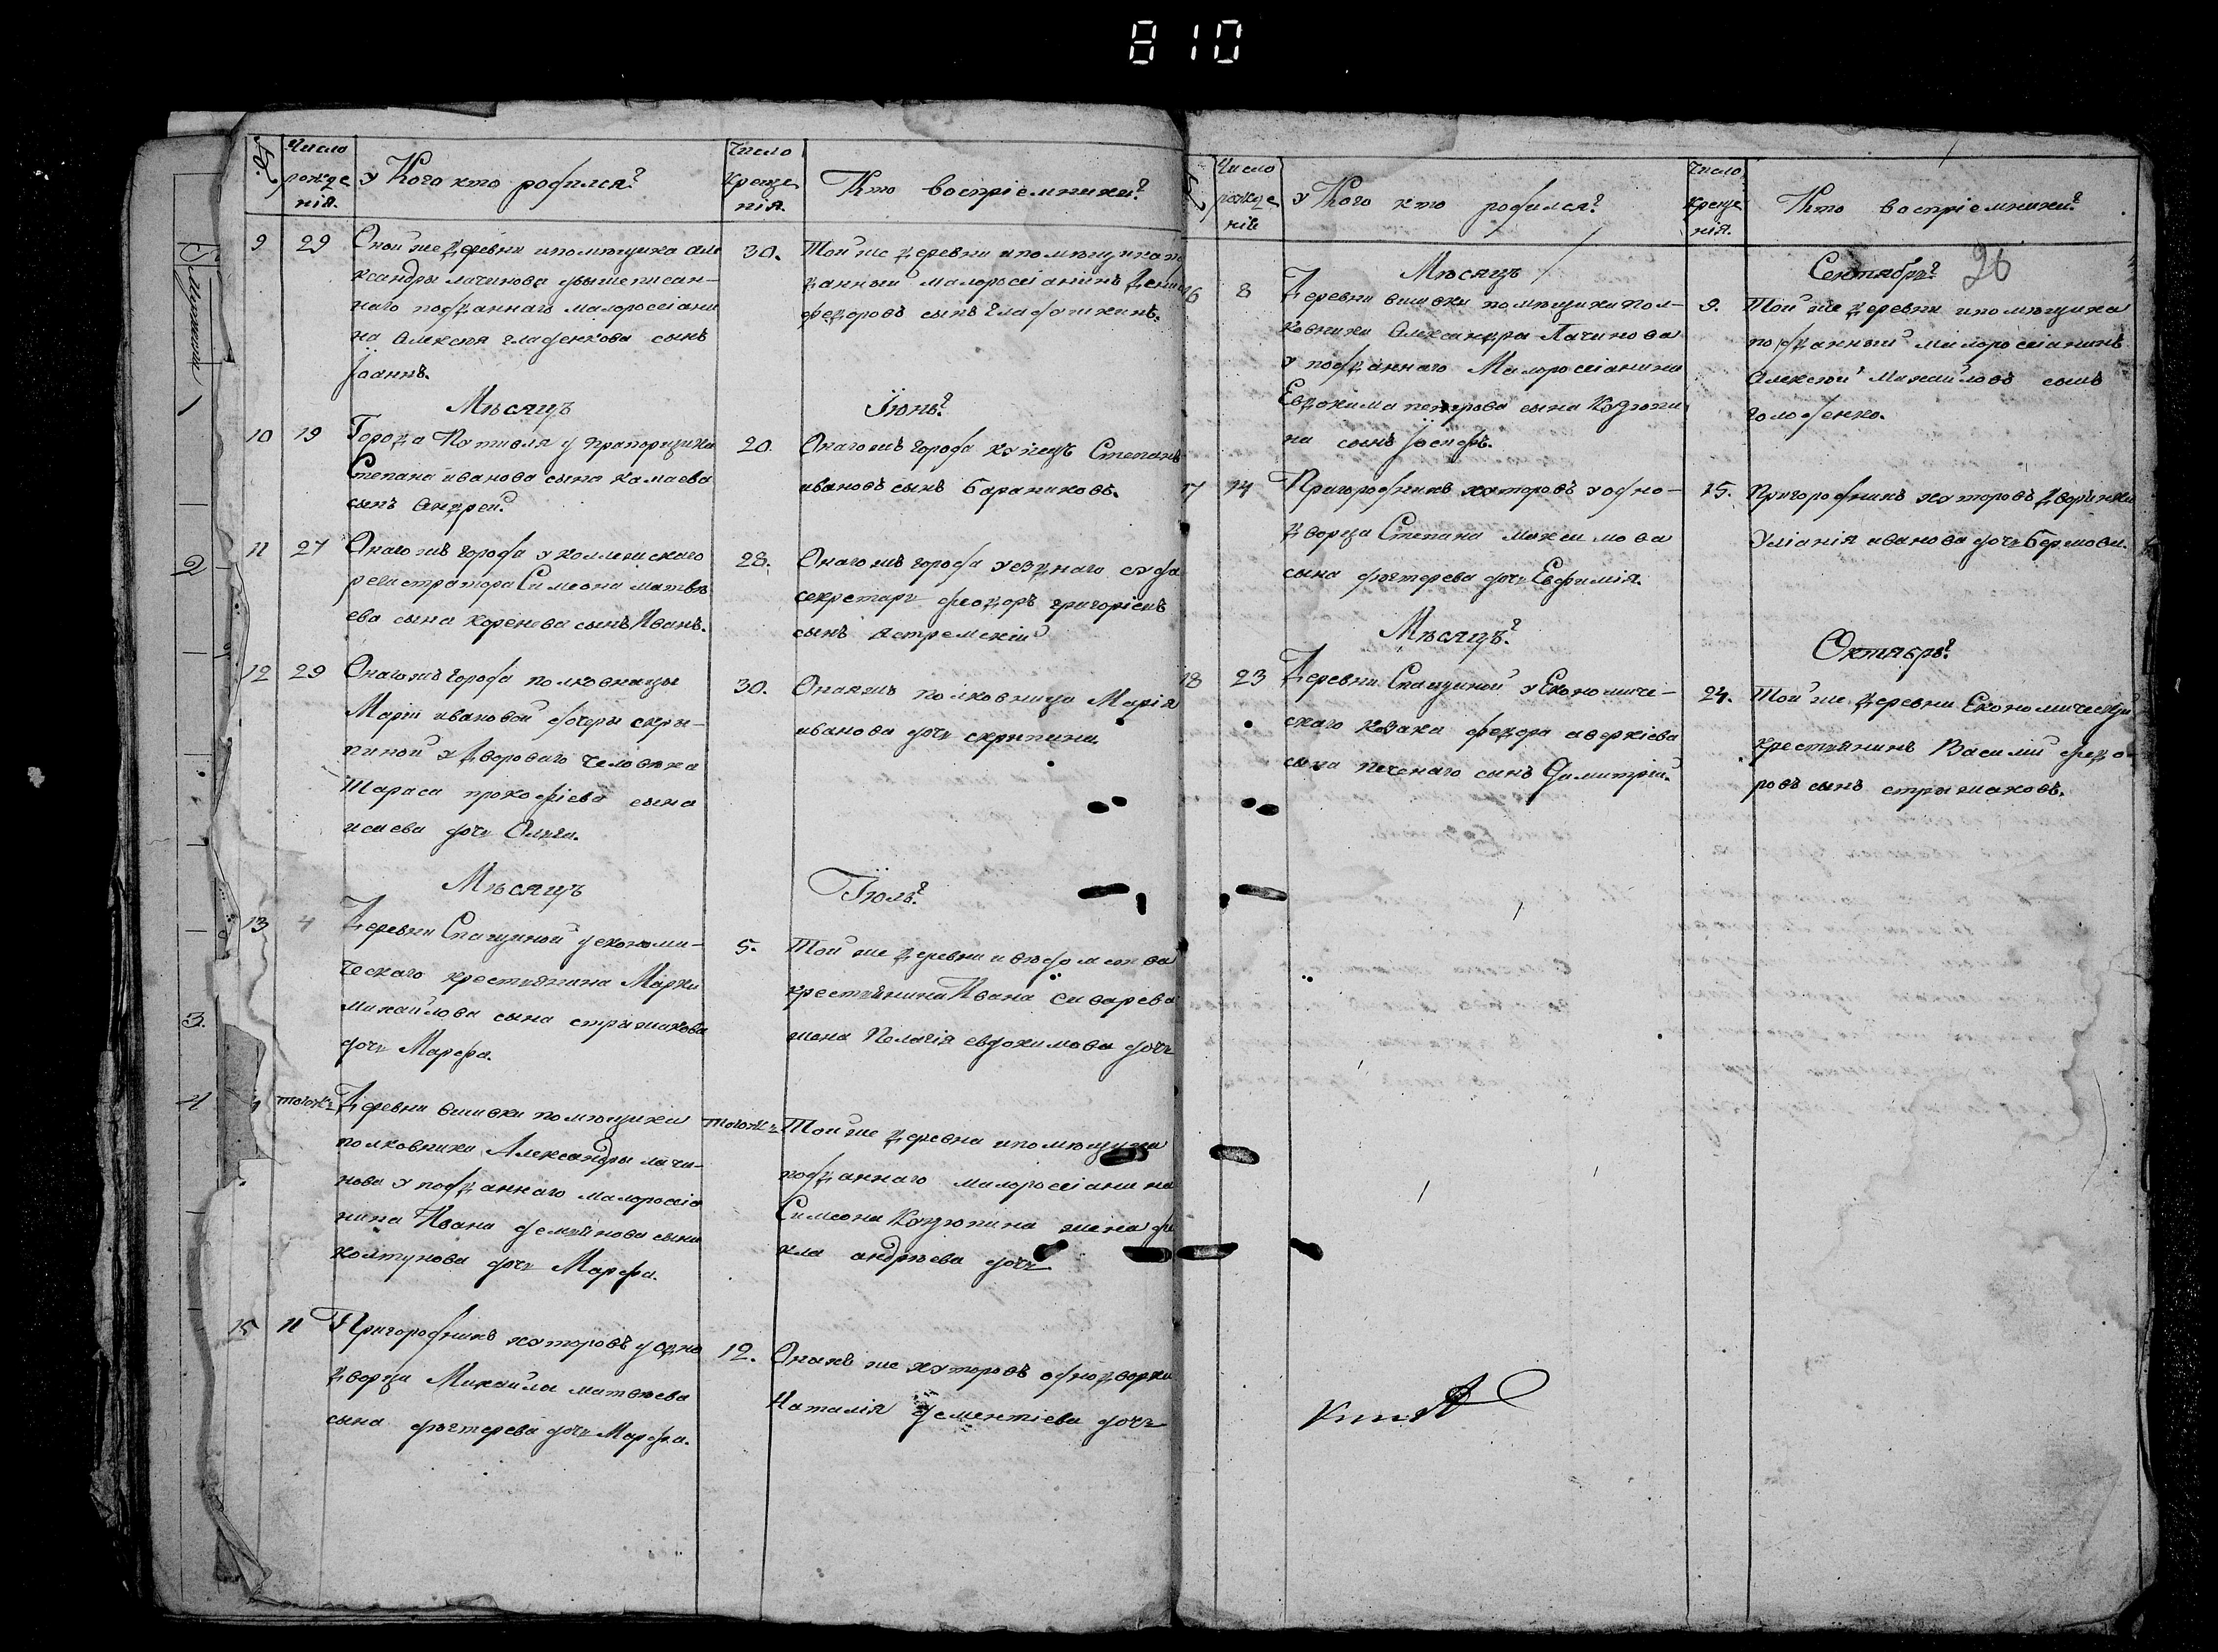 810
№.
Число рожденія.
у Кого кто родился?
Число крещенія.
Кто воспріемники?
9
29
Оной же деревни и помѣщика Але
ксандры лачинова
наго подданнаго малоросіяни
на Алексѣя сынъ
Іоаннъ.
30.
Той же деревни и помѣщика по
данный малоросіянинъ
федоровъ сынъ
Мѣсяцъ
Іюнь.
10
19
Города Путивля у Прапорщика
Степана иванова сына камаева
сынъ Андрей.
20.
Онагожъ города купецъ Степанъ
ивановъ сынъ бараниковъ.
11
27
Онагожъ города у коллежскаго
регистратора Симеона матвѣ
ева сына коренева сынъ Иванъ.
28.
Онагожъ города уезднаго суда
секретарь феодоръ григоріевъ
сынъ ястремскій
12
29
Онагожъ города полковницы
Маріи ивановой дочери скры-
пиной у дворового человѣка
Тараса прокофіева сына
исаева дочь Олга.
30.
Онаяжъ полковница Марія
иванова дочь скрыпина
Мѣсяцъ
Іюль.
13
4
Деревни Спащиной у економи-
ческаго крестьянина Марка
михайлова сына стрижакова
дочь Марфа.
5.
Той же деревни и вѣдомства
крестьянина Ивана
жена Пелагія евдокимова дочь
тогожъ
Деревни вшивки помѣщика
полковника Александры лачи-
нова у подданнаго малоросія
нина Ивана демянова сына
колтунова дочь Марфа.
тогожъ
Той же деревни и помѣщика
подданнаго малоросіянина
Симеона Кузюпина жена фе
кла андреева дочь
15
11
Пригороднихъ хуторовъ у одно
дворца Михайла матвеева
сына дехтерева дочь Марфа.
12.
Онихъ же хуторовъ однодворка
Наталія дементіева дочь
Число рожденія
у Кого кто родился?
Число крещенія.
Кто воспріемники?
Мѣсяцъ
Сентябрь.
26
16
8
Деревни вшивки помѣщика пол-
ковника Александра Лачинова
у подданнаго Малоросіянина
Евдокима петрова сына Кузюпи
на сынъ Іосифъ.
9.
Той же деревни и помѣщика
подданный малоросіянинъ
Алексѣй Михайловъ сынъ
голофенко.
17
14
Пригороднихъ хуторовъ у одно-
дворца Степана максимова
сына дехтерева дочь Евфимія.
15.
Пригороднихъ хуторовъ дворянка
Уліанія иванова дочь
Мѣсяцъ.
Октябрь.
18
23
Деревни Спащиной у Економиче-
скаго федора аверкіева
сына сынъ Димитрій.
24.
Той же деревни Економический
крестьянинъ Василій федо-
ровъ сынъ стрижаковъ.
2
3.
4